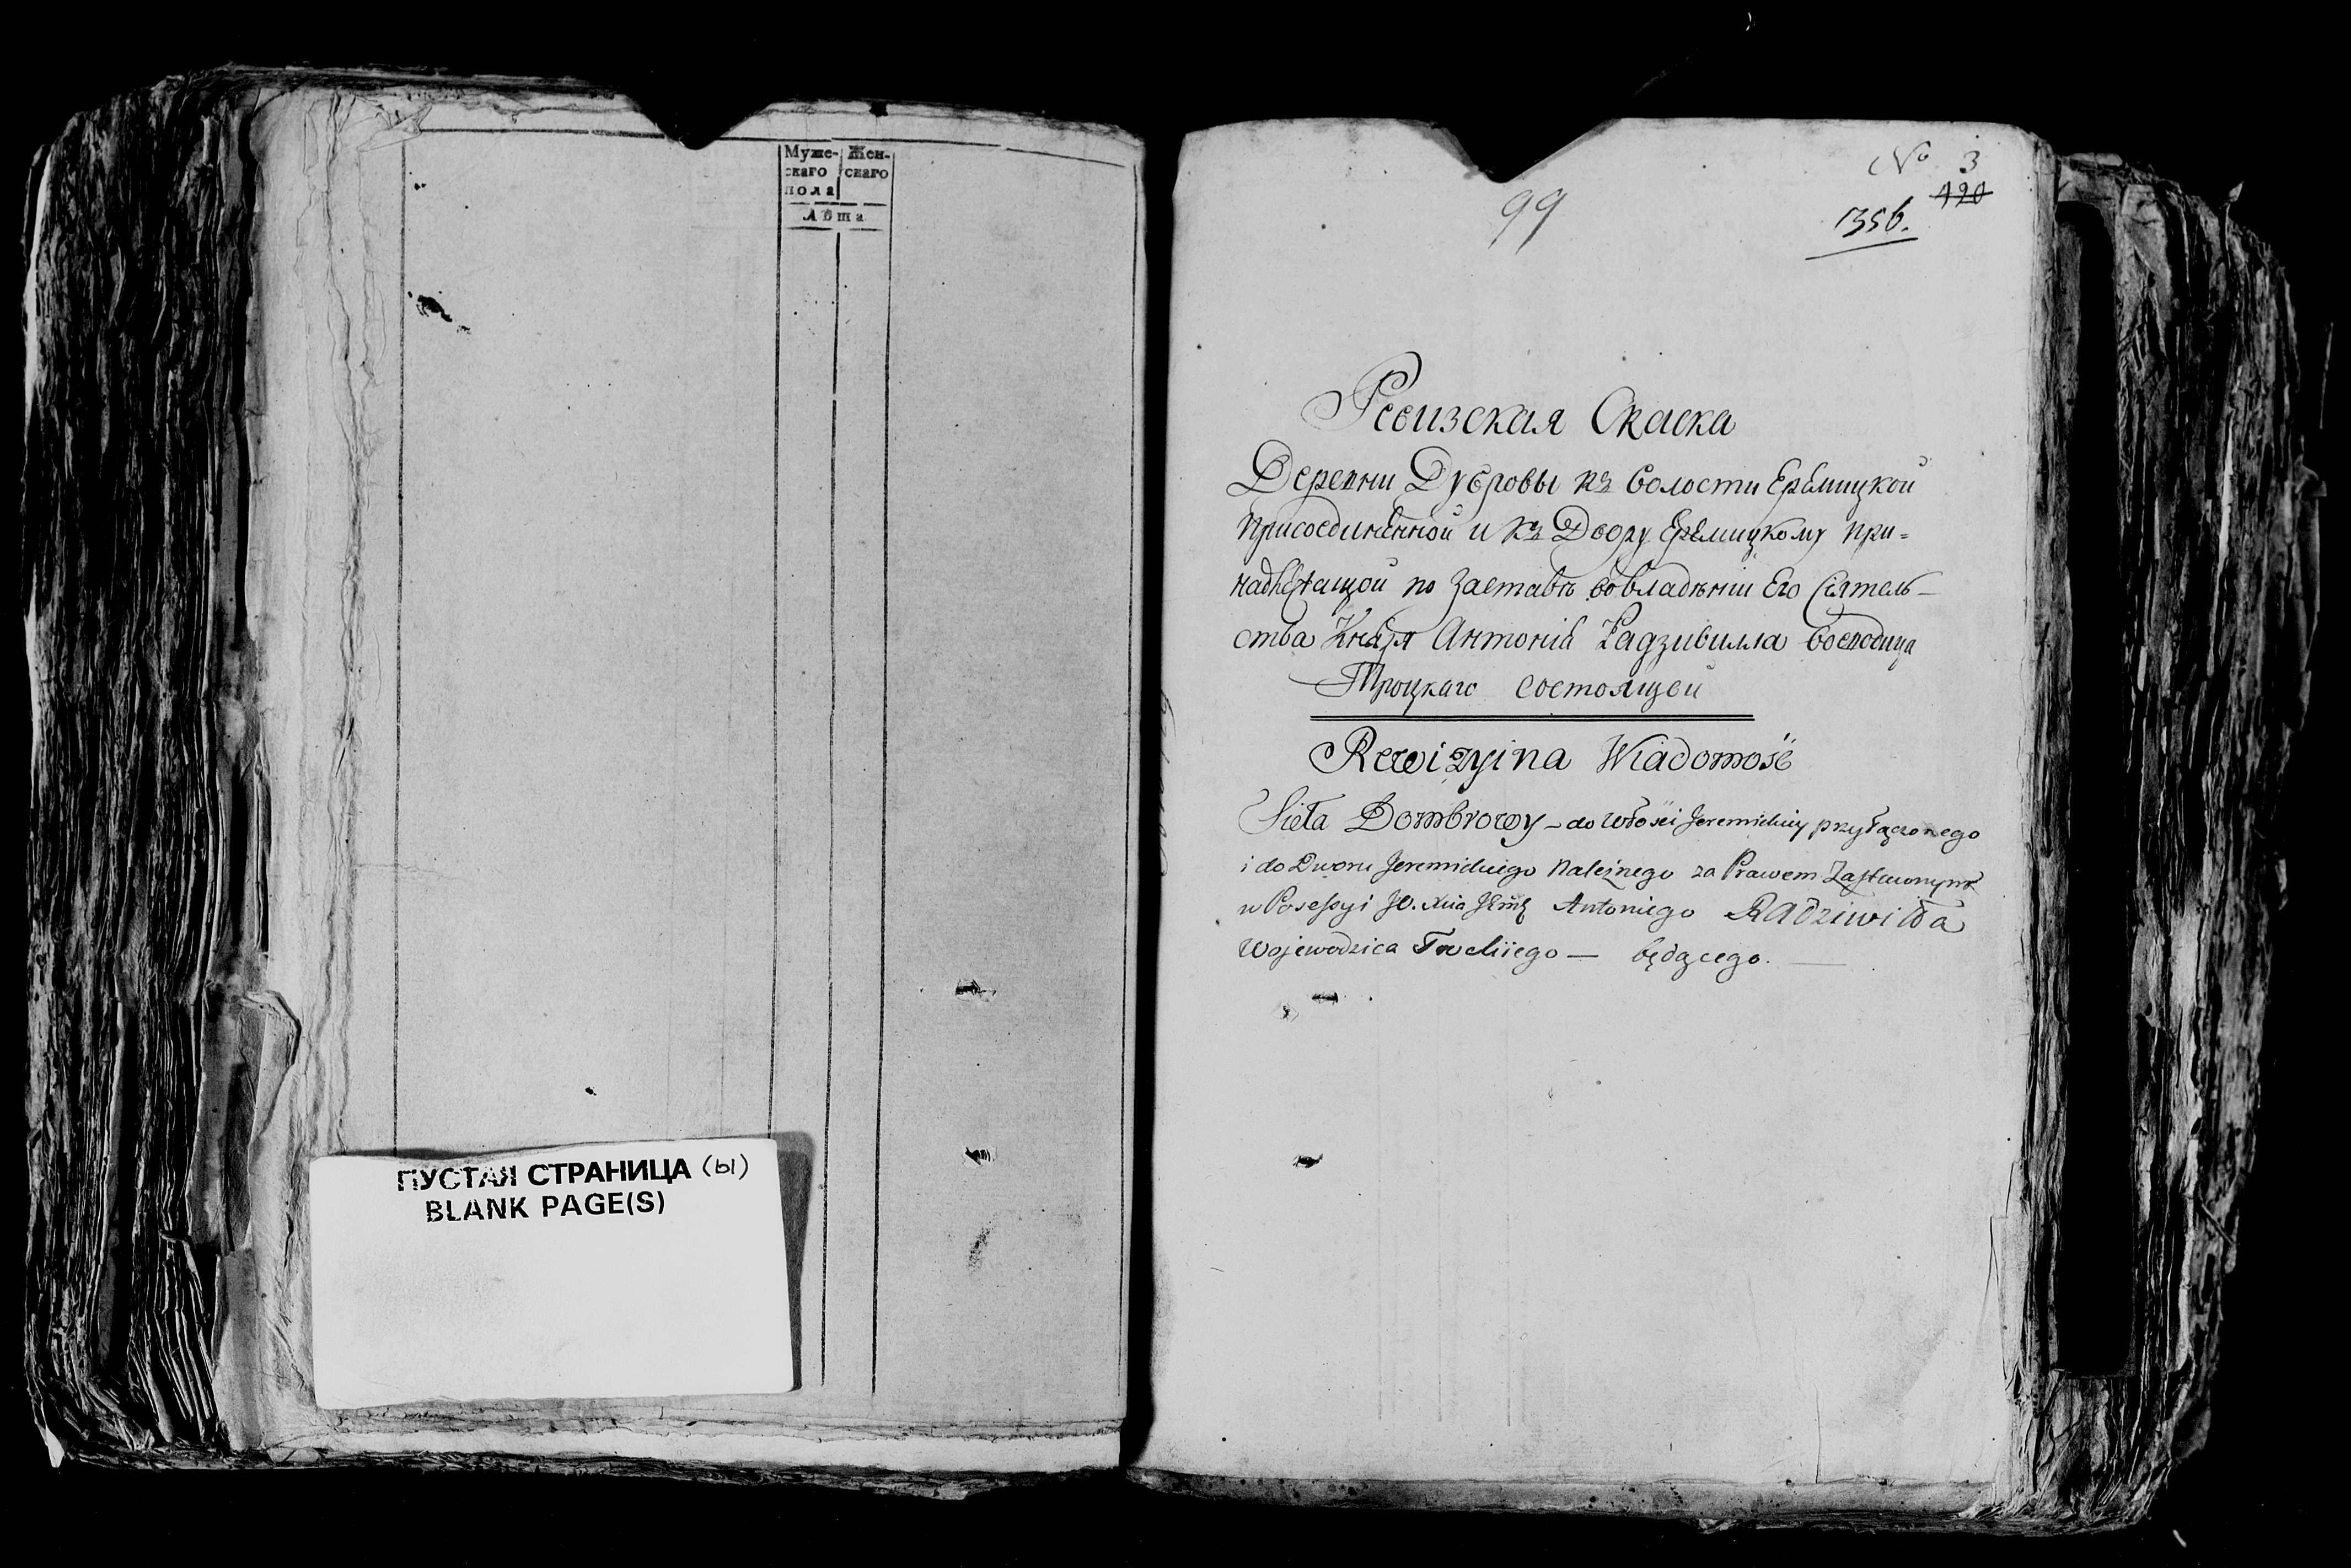 Муже- Жен-
скаго скаго
пола
Лѣта
ПУСТАЯ СТРАНИЦА (ы)
BLANK PAGE(S)
No 3
420
99
1356.
Ревизская Скаска
Деревни Дубровы къ волости Ерѣмицкой
присоединенной и къ Двору Ерѣмицкому при-
надлежащой по Заставѣ во владѣнiи Его Сiятель-
ства Князя Антонiя Радзивилла воеводица
Троцкаго состоящей
Rewizyina Wiadomość
Sieła Dombrowy - do włości Jeremickiey przyłączonego
i do Dworu Jeremickiego należnego za Prawem Zastawnym
w Posessyi JO. Xcia Antoniego Radziwiłła
Wojewodzica Trockiiego — będącego. —